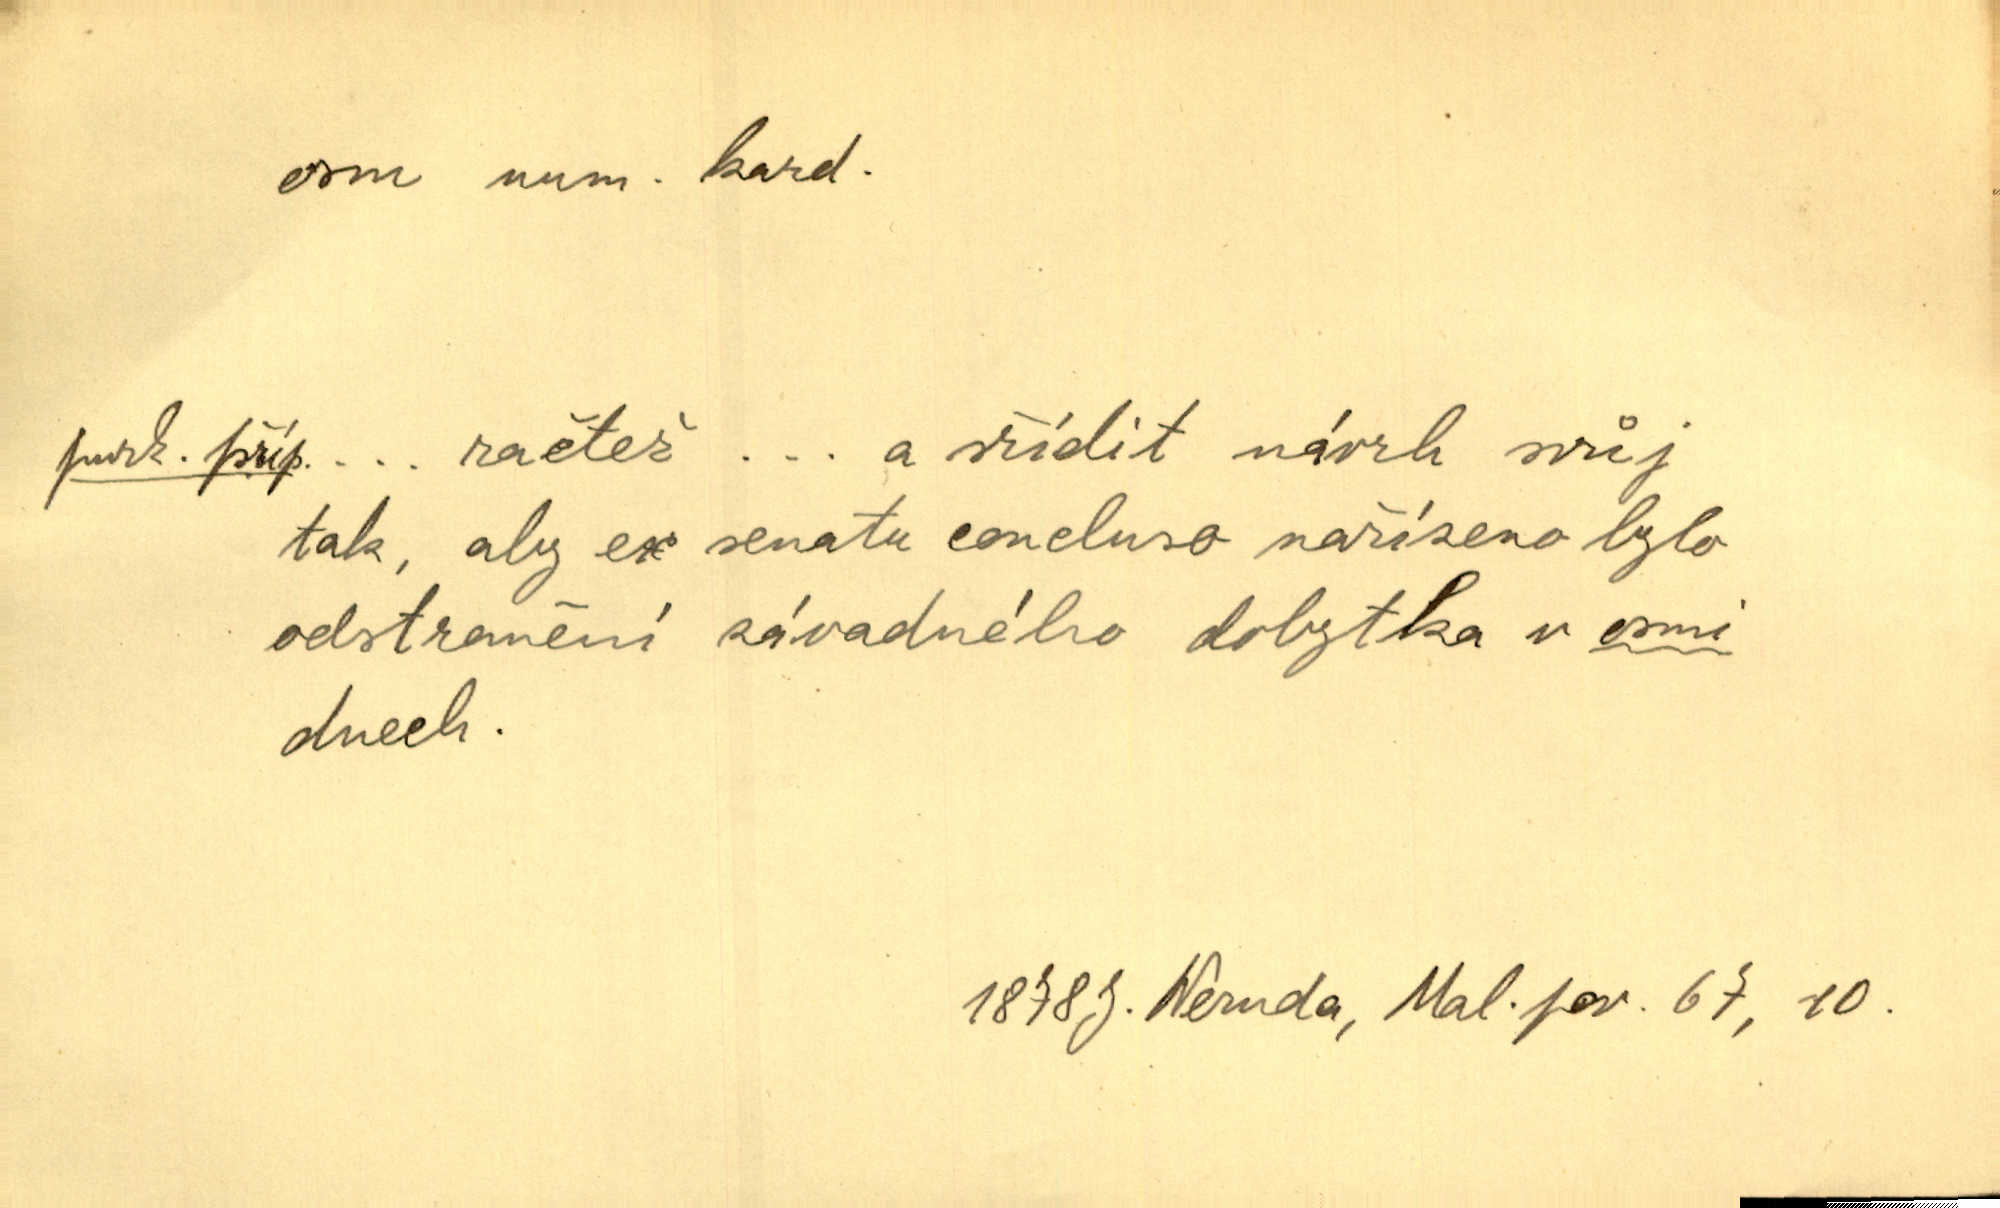 osm num. kard.
příp. ... račtež ... a sřídit návrh svůj
tak, aby ex senatu concluso nařízeno bylo
odstranění závadného dobytka v osmi
dnech.
1878 J. Neruda, Mal. pov. 67, 10.